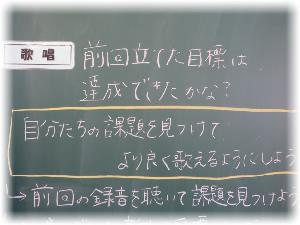 歌唱
前回立てた目標は
達成できたかな?
自分たちの課題を見つけて
より良く歌えるようにしよう
→前回の録音を聴いて課題を見つけよう